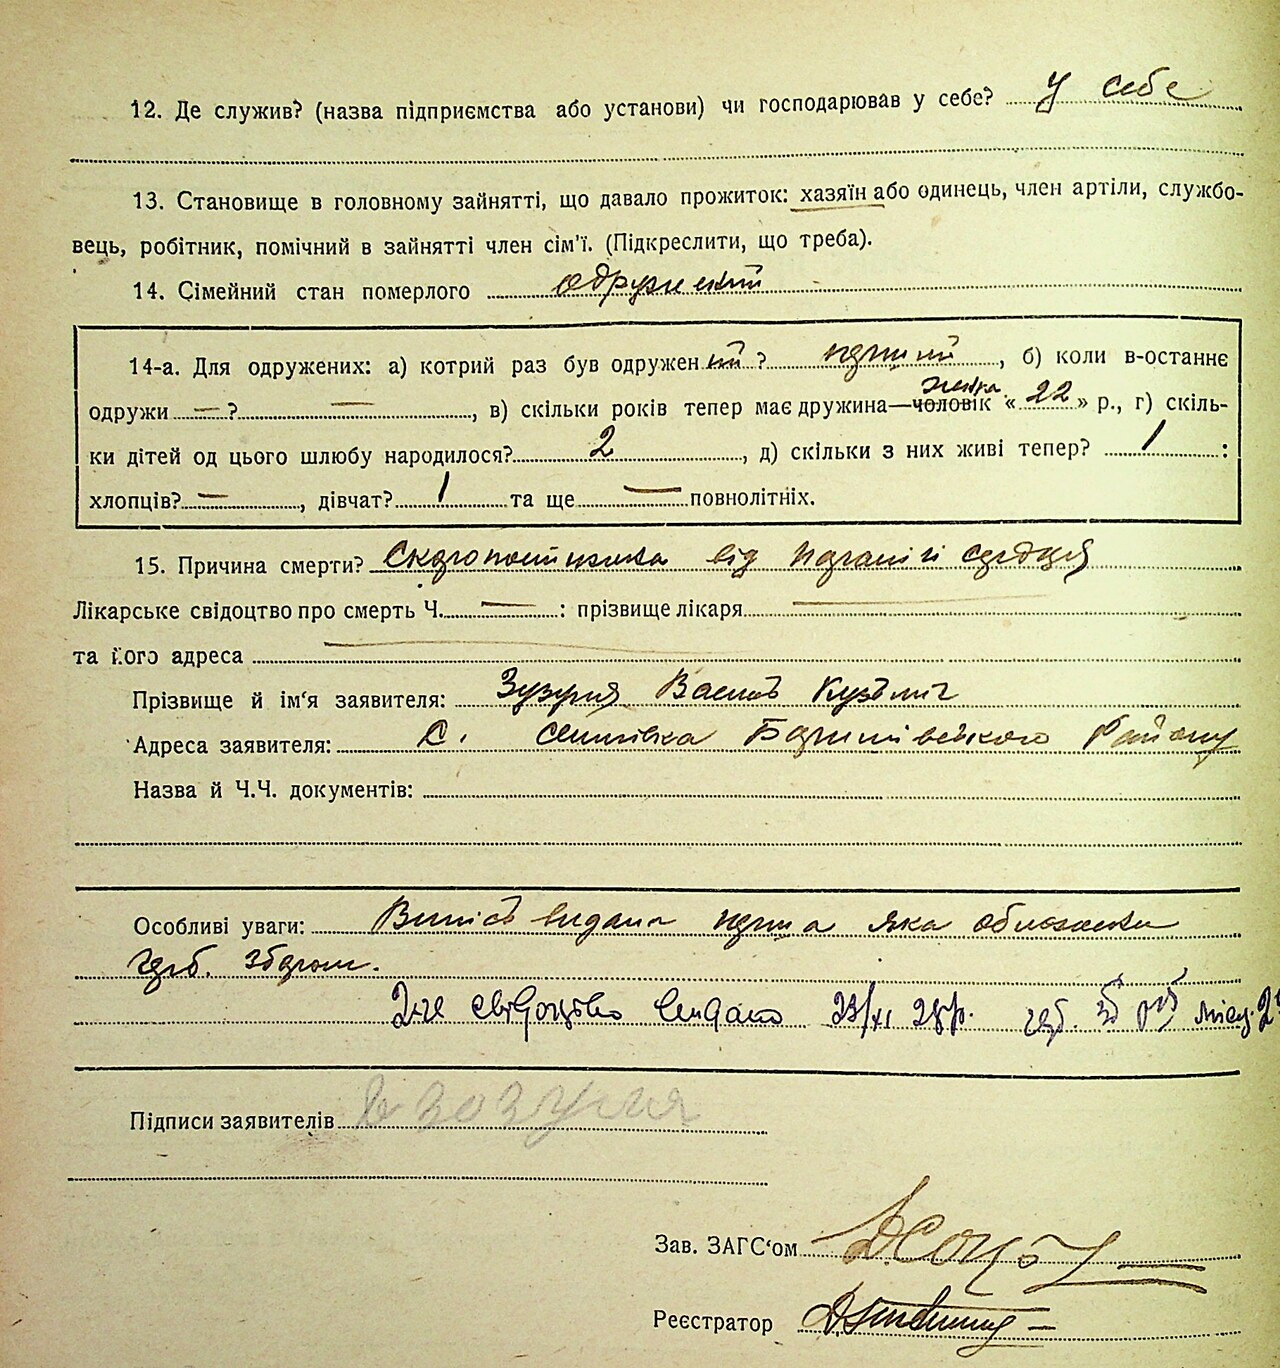 12. Де служив? (назва підприємства або установи) чи господарював у себе? у себе
13. Становище в головному зайнятті, що давало прожиток: хазяїн або одинець, член артіли, службо-
вець, робітник, помічний в зайнятті член сім'ї. (Підкреслити, що треба).
14. Сімейний стан померлого одружений
14-а. Для одружених: а) котрий раз був одружен ий ? перший, б) коли в-останнє
одружи — ? —, в) скільки років тепер має дружина—чоловік « 22 » р., г) скіль-
ки дітей од цього шлюбу народилося? 2, д) скільки з них живі тепер? 1 :
хлопців? —, дівчат? 1 та ще — повнолітніх.
15. Причина смерти? Скоропостижна від серця
Лікарське свідоцтво про смерть Ч. — : прізвище лікаря —
та його адреса —
Прізвище й ім'я заявителя: Зузуля Василь Кузьмич
Адреса заявителя: С. району
Назва й Ч.Ч. документів:
Особливі уваги: видана яка
герб. збором.
2-ге свідоцтво видано 23/XI 28р. герб.
Підписи заявителів Зозуля
Зав. ЗАГС'ом
Реєстратор